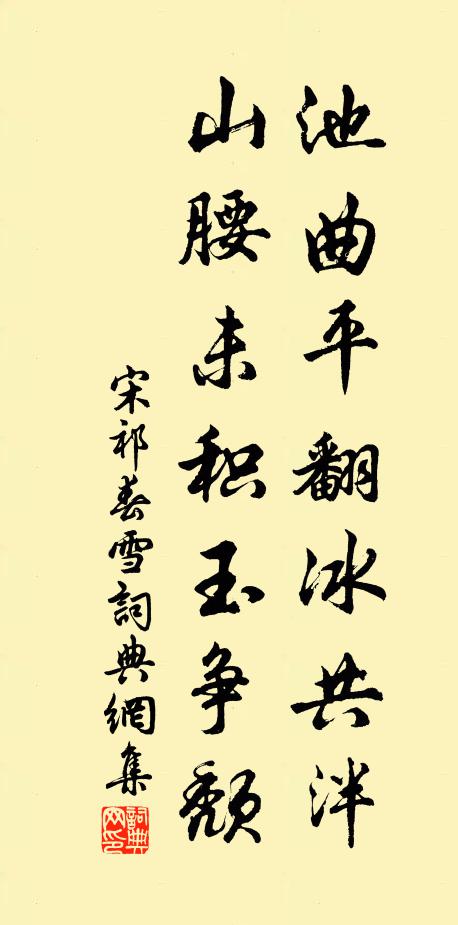 池曲平翻冰共泮
山腰未积玉争颓
宋祁春雪詞典網集
詞典网印